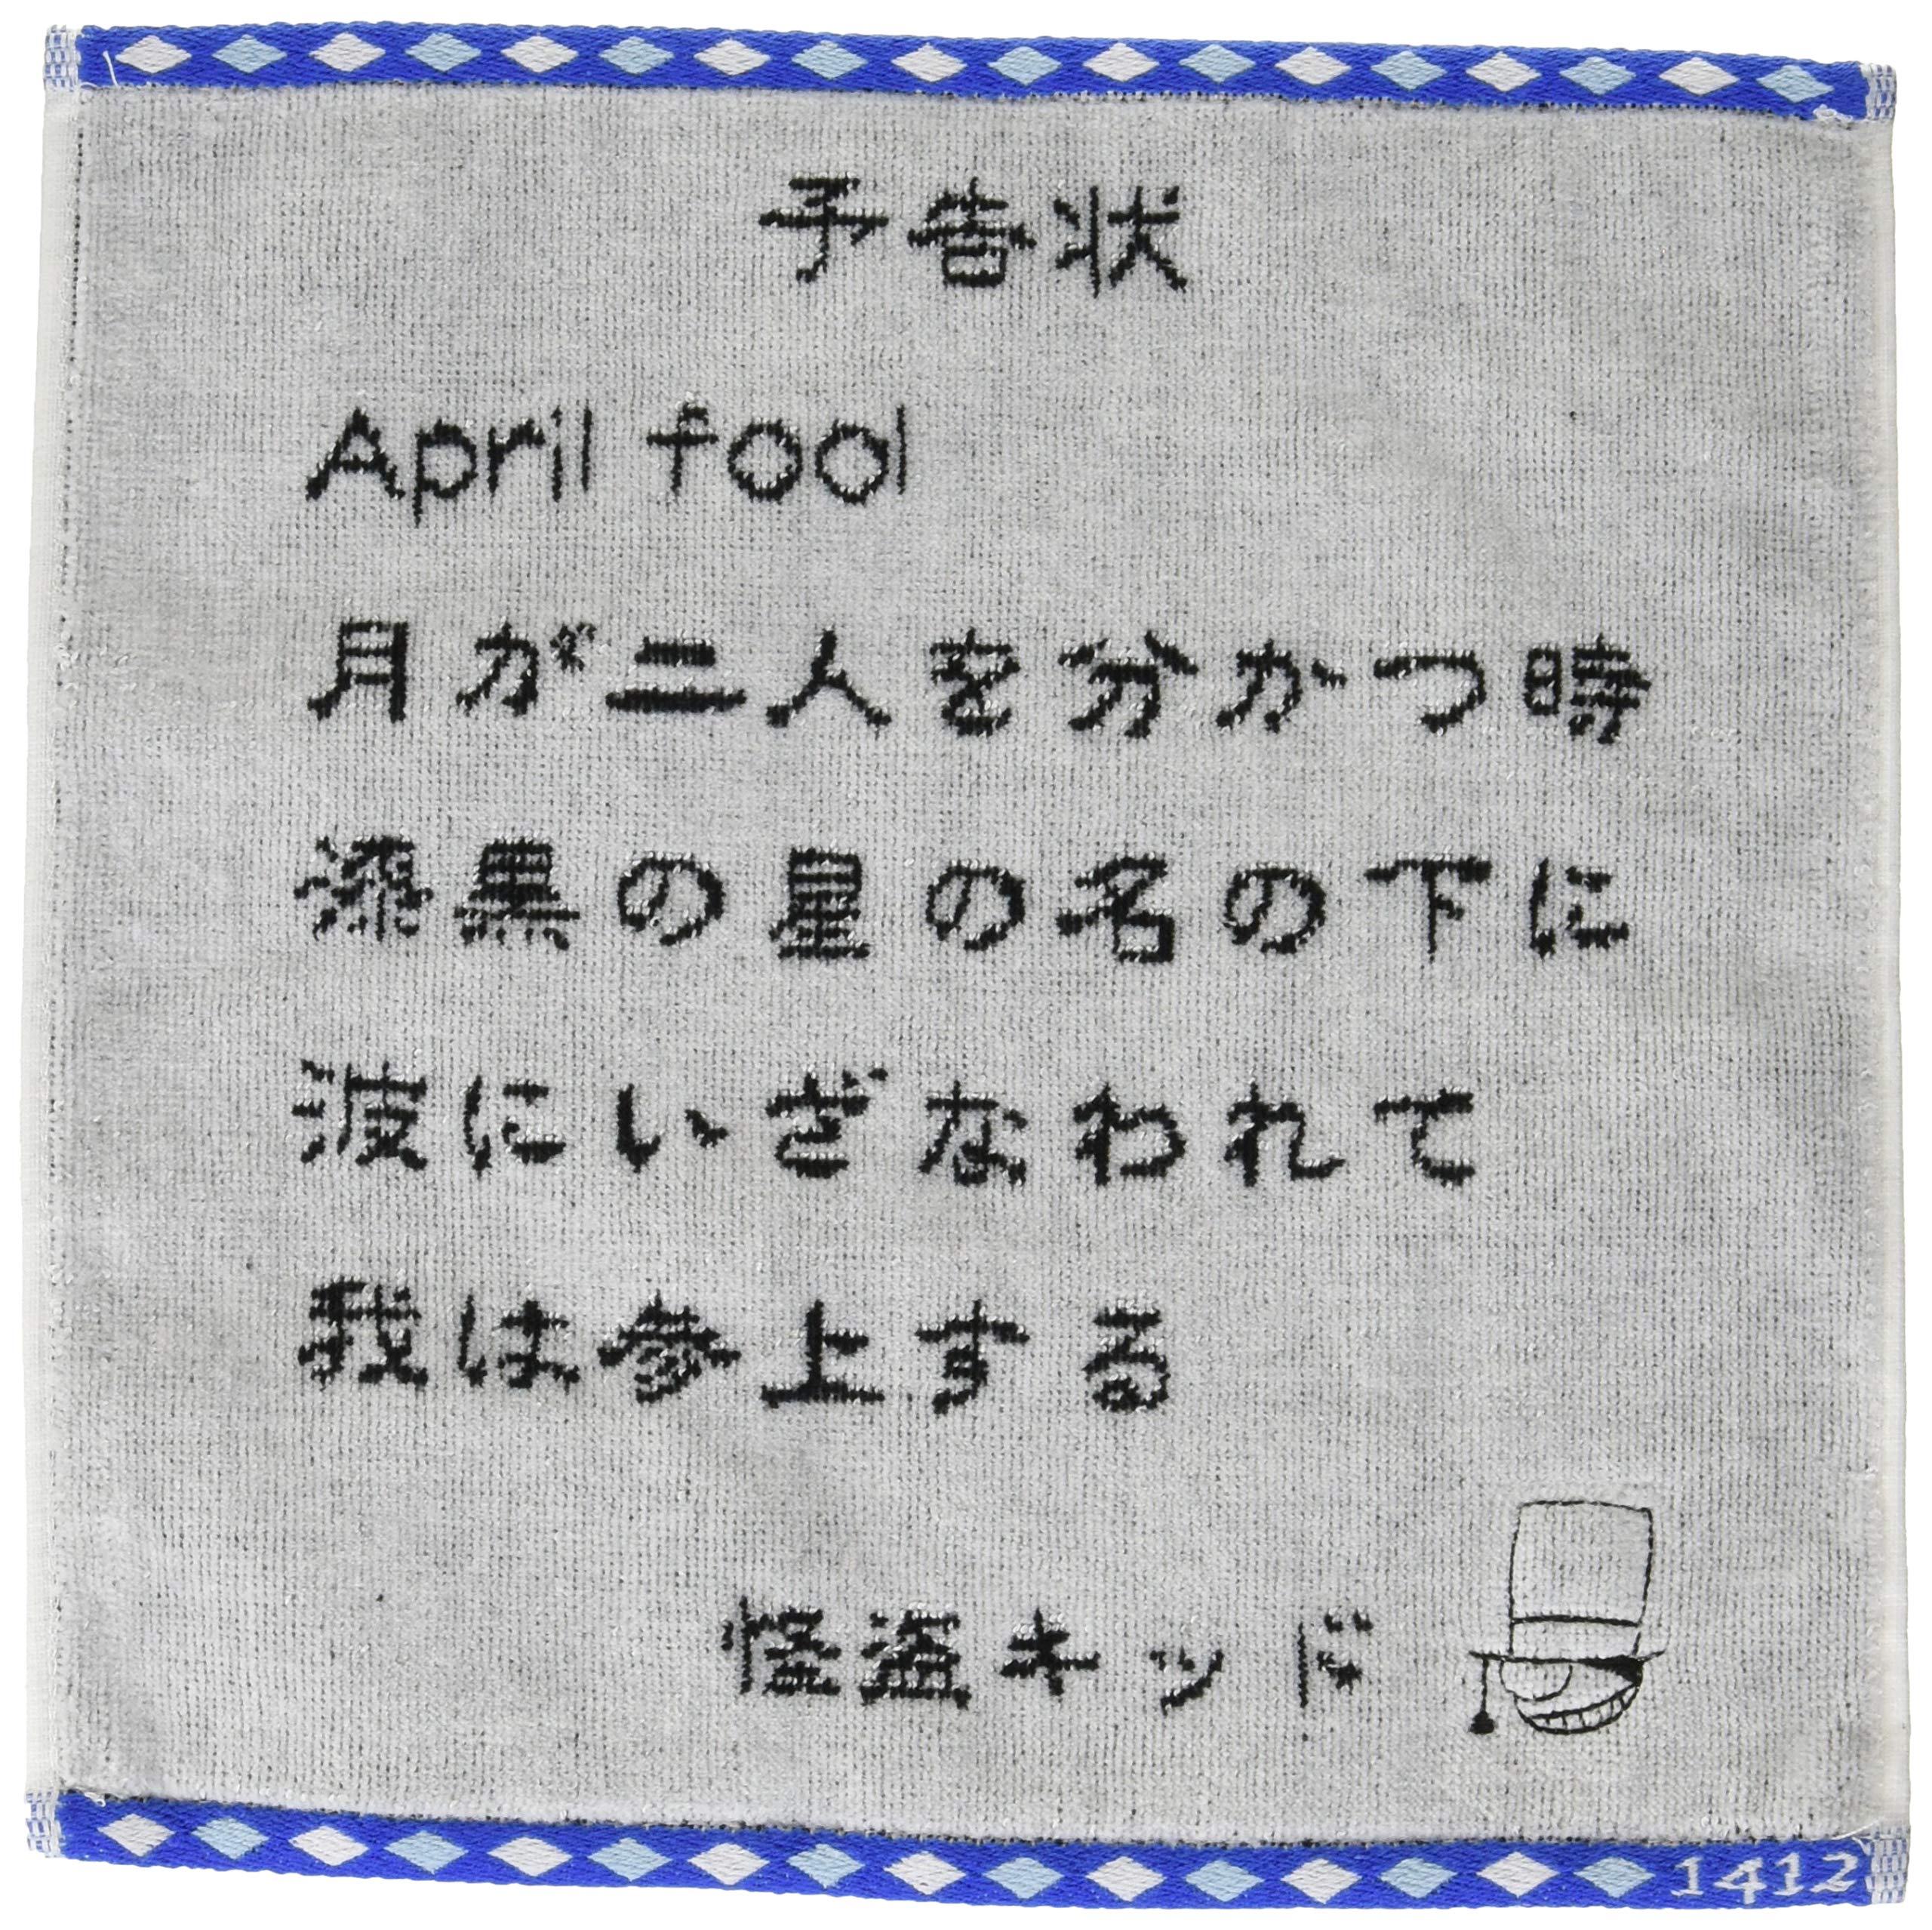 予告状
April fool
月が二人を分かつ時
漆黒の星の名の下に
波にいざなわれて
我は参上する
怪盗キッド
1412